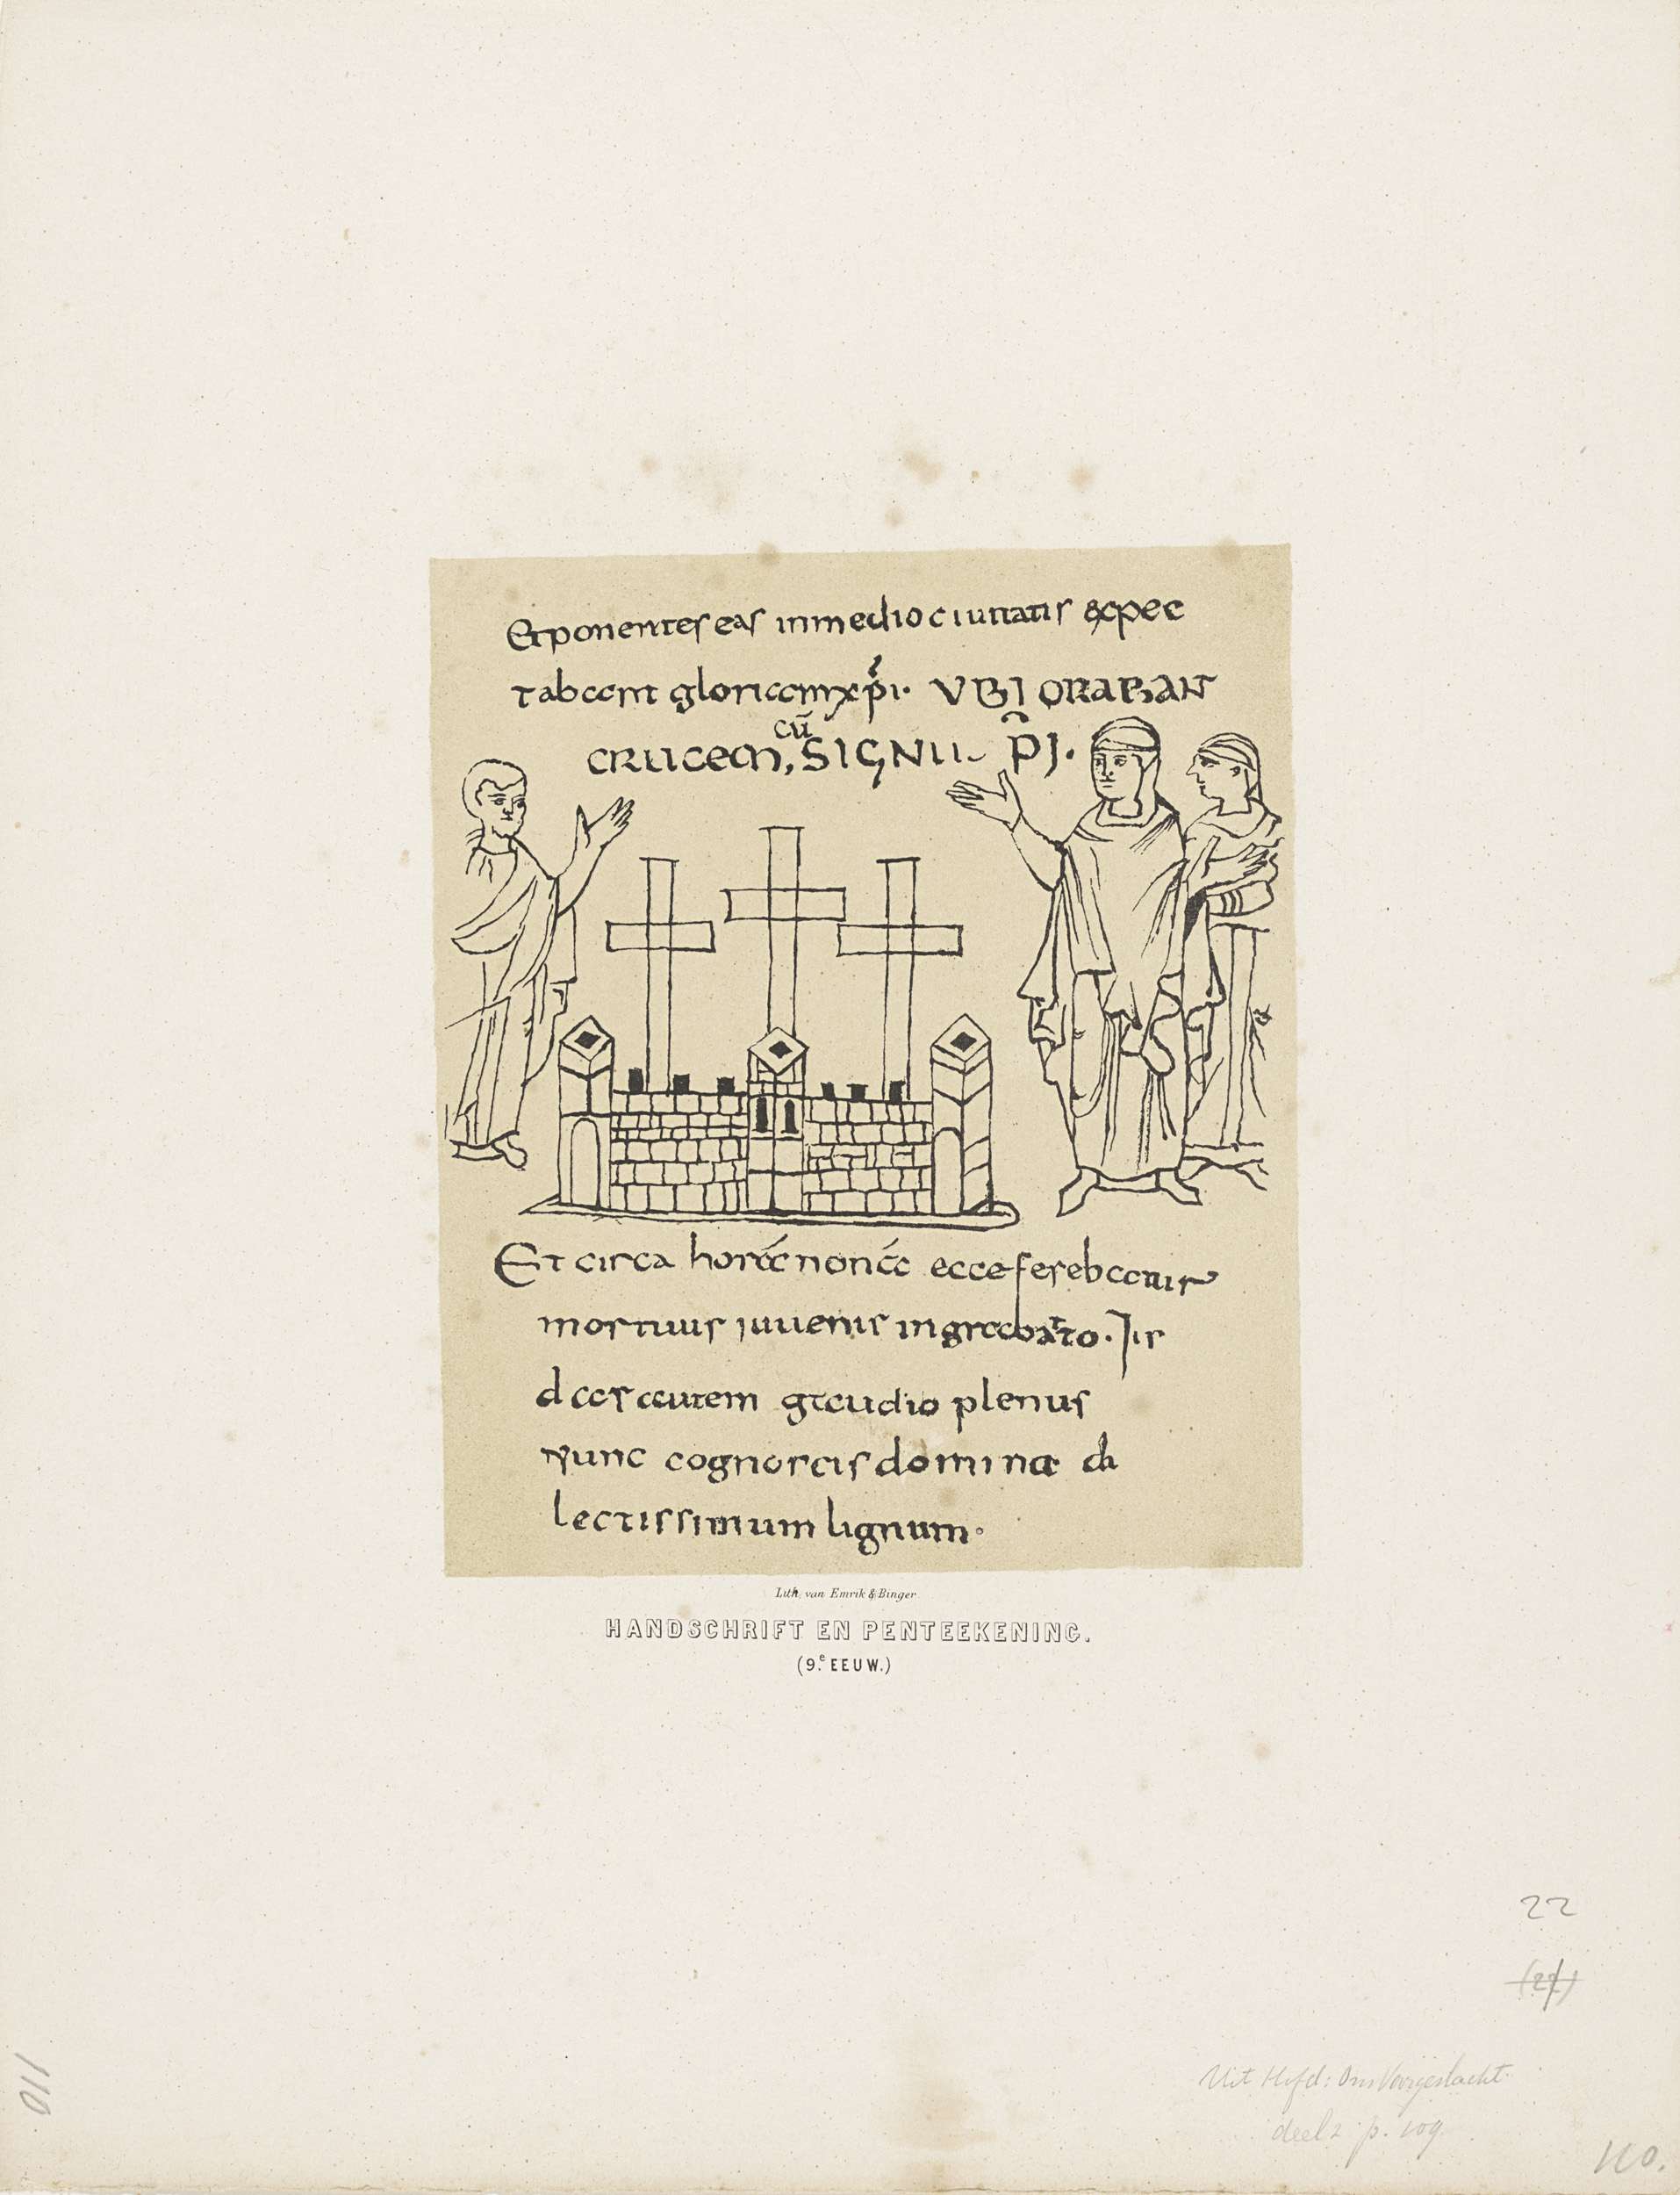 Et ponentes eas in medio ciuitatis expec
tabant gloriam xp̄i. VBI ORABANT
CRUCEM, cū SIGNU. P̄I.
Et circa horā nonā ecce ferebatur
mortuus iuuenis in grabatto. Iu
das autem gaudio plenus
Nunc cognoscis domina di
lectissimum lignum.
Lith. van Emrik & Binger
HANDSCHRIFT EN PENTEEKENING.
(9.e EEUW.)
22
(27)
Uit Hofd: Ons Voorgeslacht.
deel 2 p. 109
110
110.